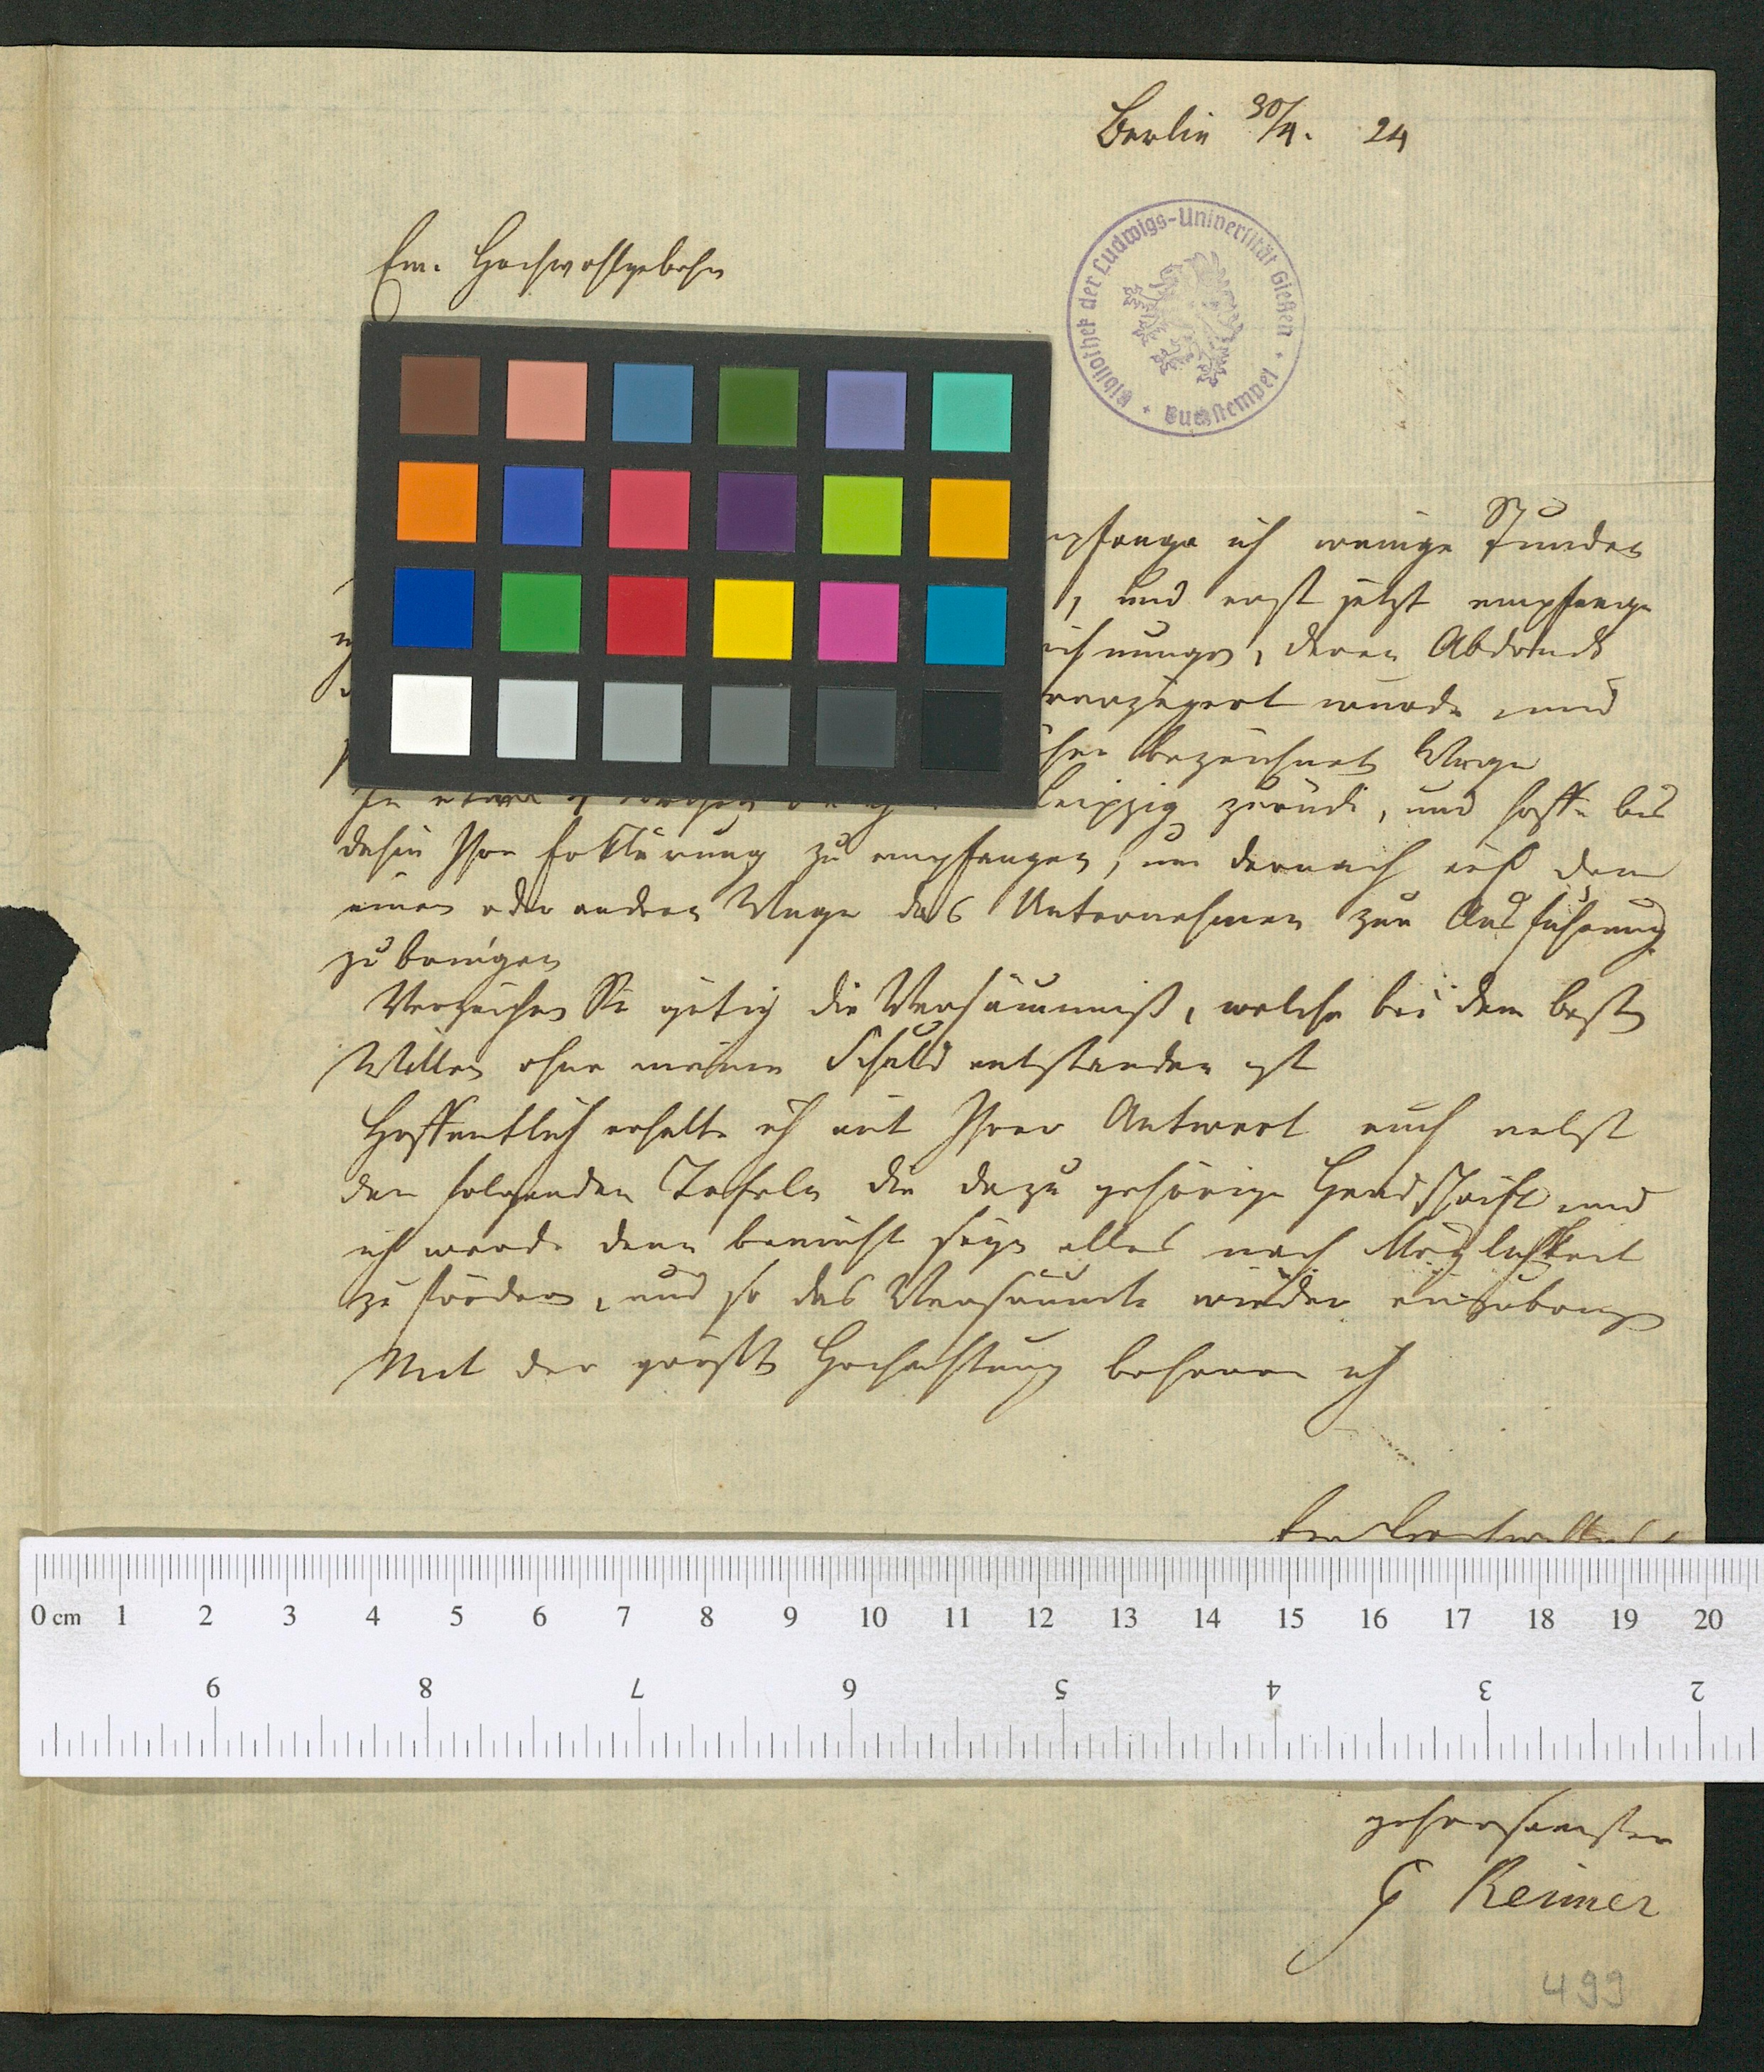 Berlin 30/4. 24
Ew. Hochwohlgeborn
Bibliothek der Ludwigs-Universität Gießen
Buchstempel
empfange ich wenige Stunden
, und erst jetzt empfange
deren Abdruck
verzögert wurde und
bezeichneten Wege
Leipzig zurück, und hoffe bis
dahin Ihre Erklärung zu empfangen, um darnach auf dem
einen oder andern Wege das Unternehmen zur Ausführung
zu bringen
Verzeihen Sie gütig die Versäumniß, welche bei dem besten
Willen ohne meine Schuld entstanden ist
Hoffentlich erhalte ich mit Ihrer Antwort auch nebst
den folgenden Tafeln die dazu gehörige Handschrift und
ich werde dann bemüht seyn alles nach Möglichkeit
zu fördern, und so das Versäumte wieder einzubringen
Mit der größten Hochachtung beharre ich
0 cm 1 2 3 4 5 6 7 8 9 10 11 12 13 14 15 16 17 18 19 20
9 8 7 6 5 4 3 2
gehorsamster
G Reimer
499